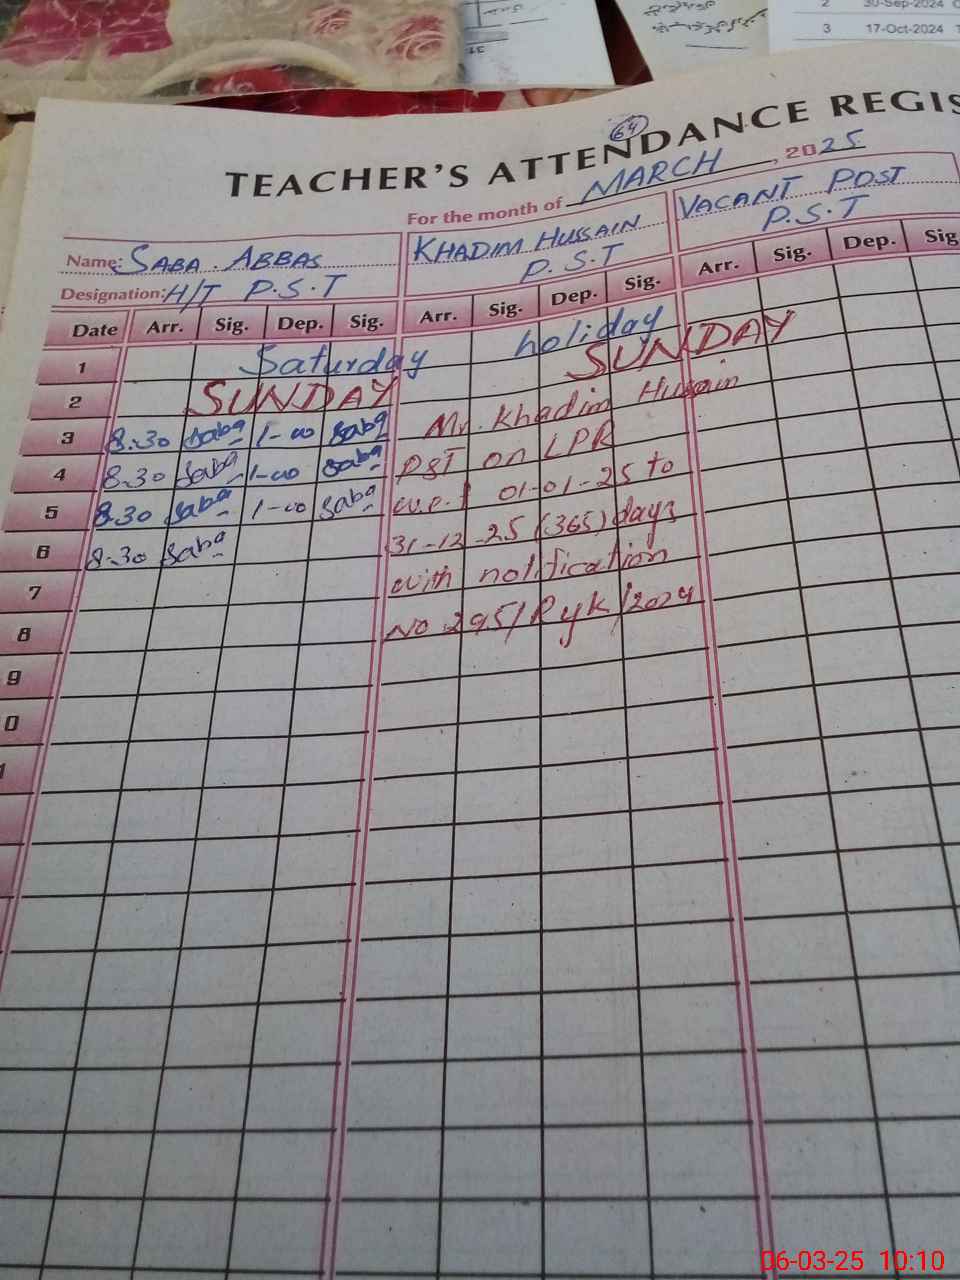 2 30-Sep-2024
3 17-Oct-2024
64
TEACHER'S ATTENDANCE REGIS
For the month of MARCH, 2025
Name: SABA. ABBAS
Designation: H/T P.S.T
KHADIM HUSSAIN
P.S.T
VACANT POST
P.S.T
Date Arr. Sig. Dep. Sig. Arr. Sig. Dep. Sig. Arr. Sig. Dep. Sig
1 Saturday holiday
2 SUNDAY SUNDAY
3 8.30 Saba 1-00 Saba Mr. Khadim Hussain
4 8.30 Saba 1-00 Saba PST on LPR
5 8.30 Saba 1-00 Saba w.e.f 01-01-25 to
6 8.30 Saba 31-12-25 (365) days
7 with notification
8 No 295/Ryk/2024
9
0
1
06-03-25 10:10